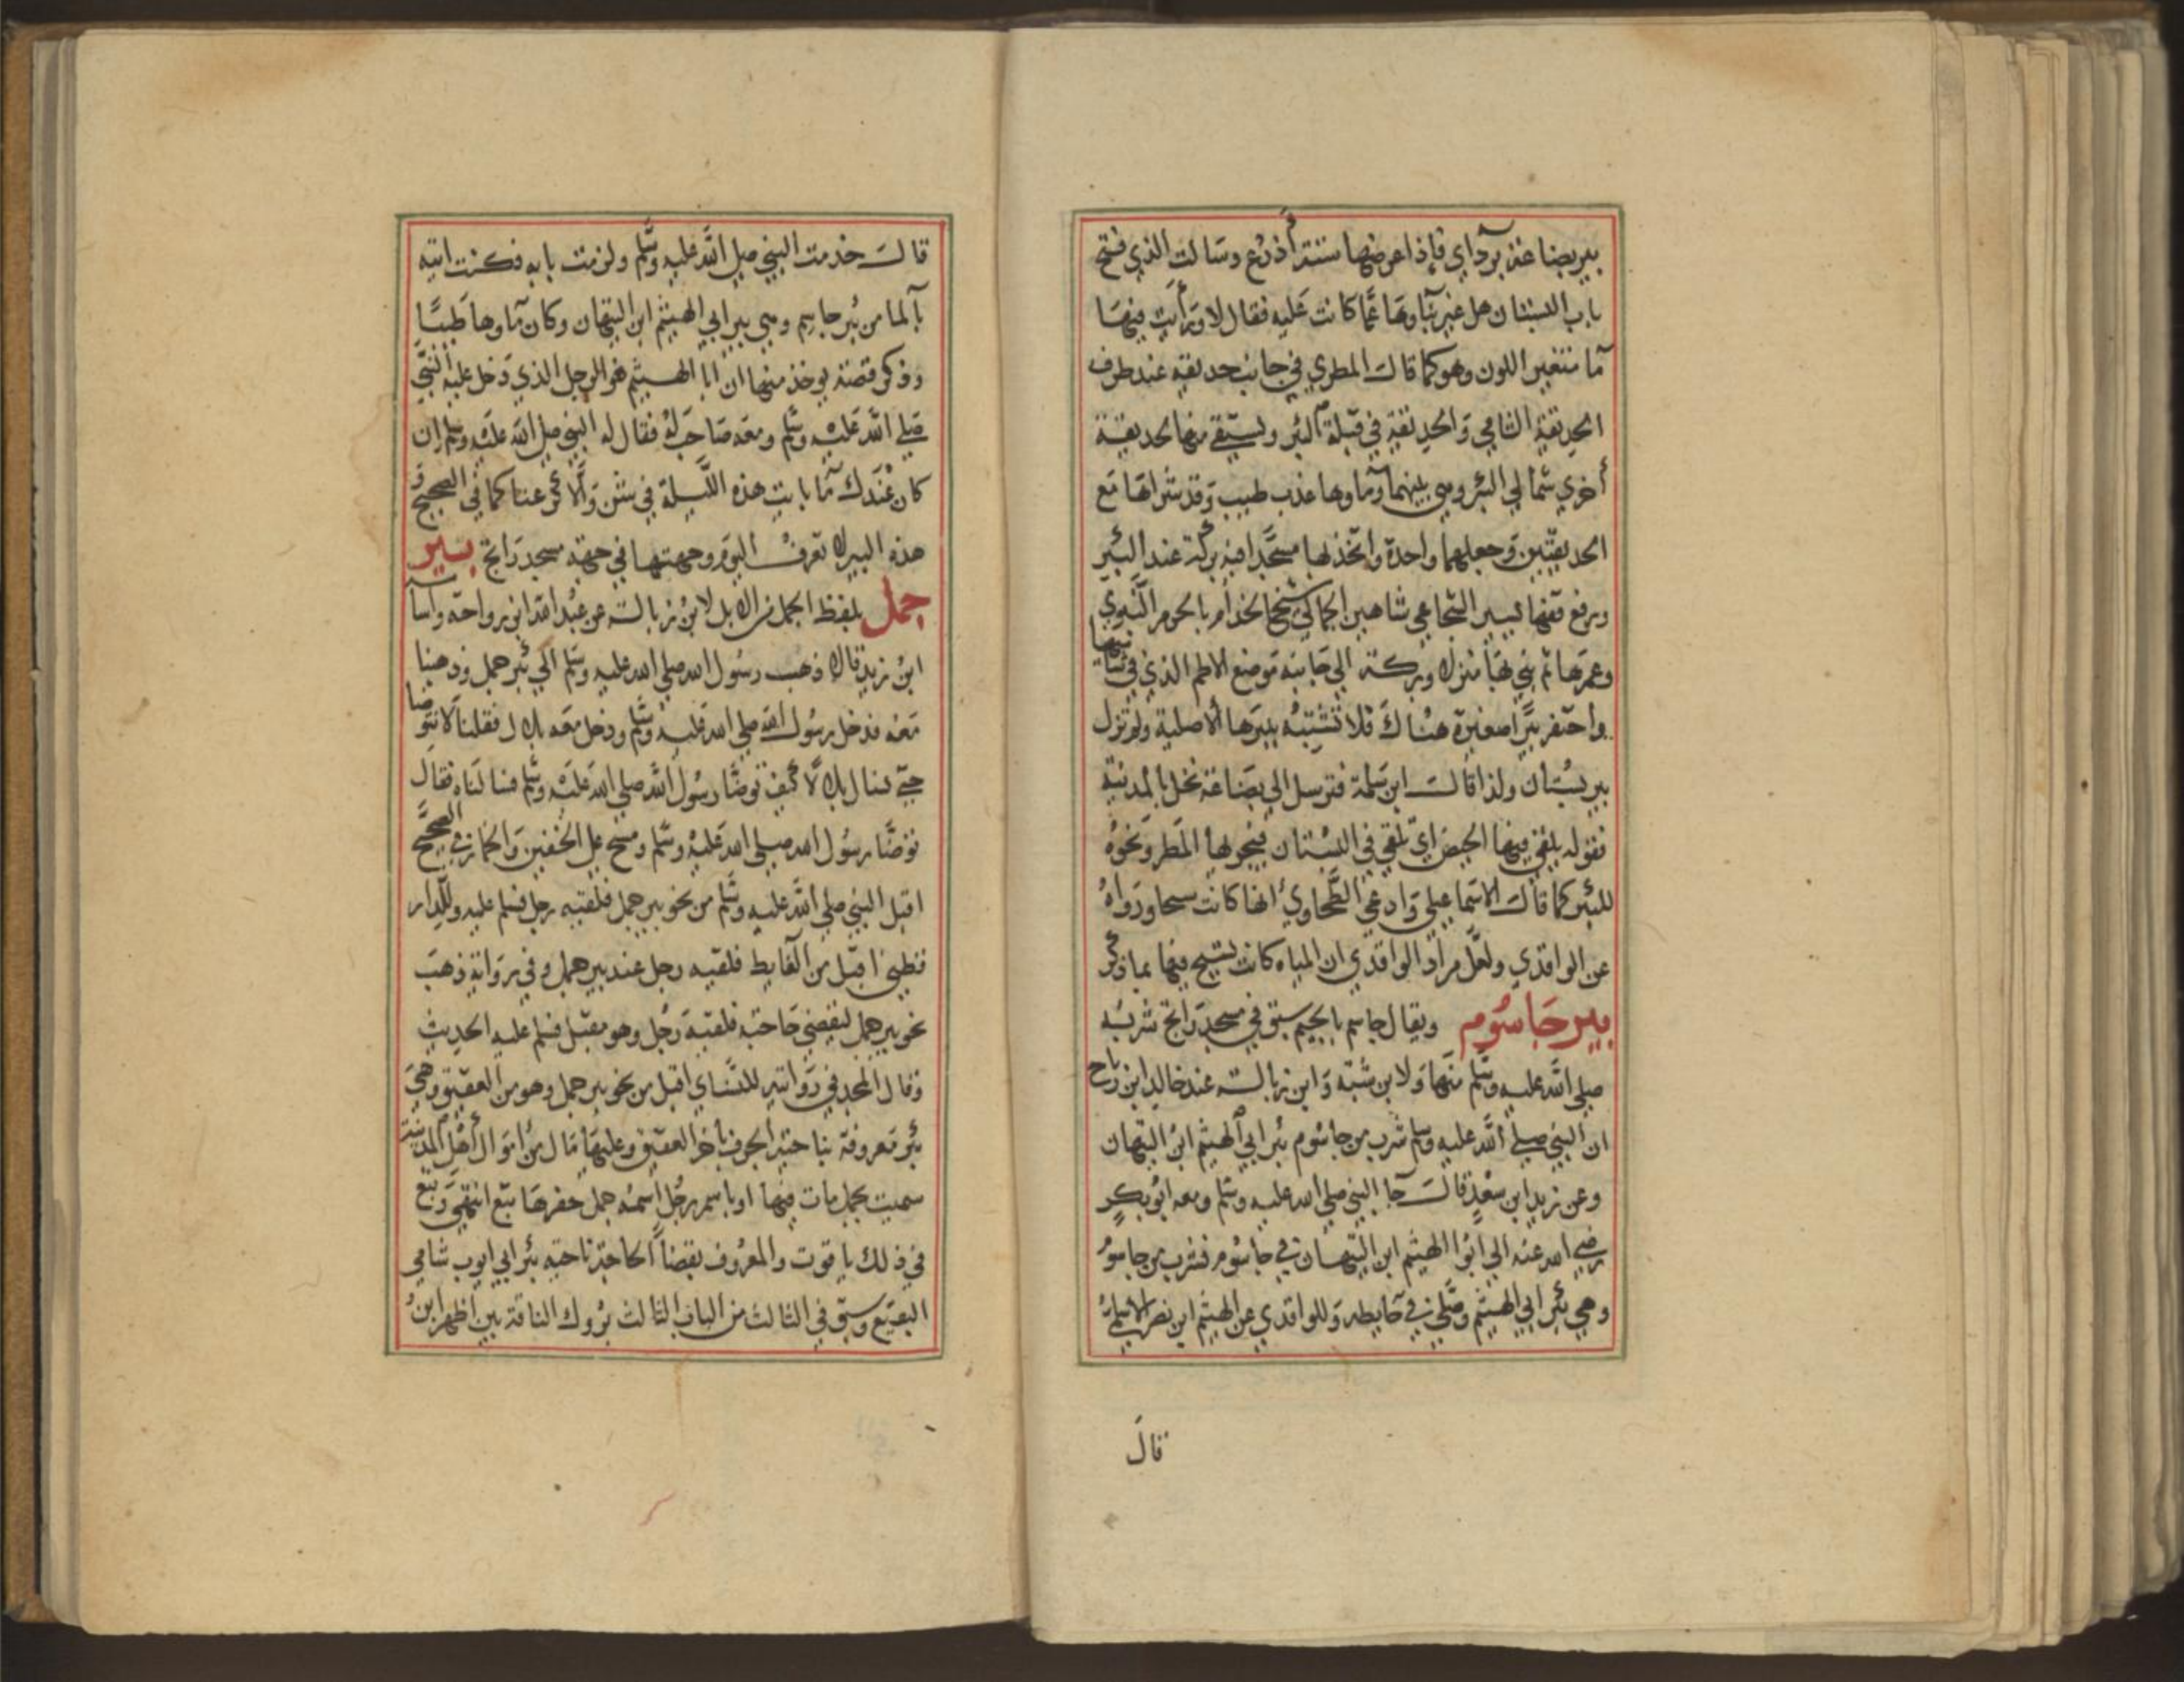 بير بضاعة برداي فإذا عرضها ستة أذرع وسالت الذي فتح
باب البستان هل غير بناوها عما كانت عليه فقال لا ورأيت فيها
مآ متغير اللون وهو كما قال المطري في جانب حديقة عند طرف
الحديقة الشامي والحديقة في قبلة البئر ويستقي منها الحديقة
أخري شمالي البئر وهي بينهما وماوها عذب طيب وقد شراها مع
الحديقتين وجعلهما واحدة واتخذ لها مسجدا فيه بركة عند البئر
ورفع قفها ليسير الشجاعي شاهين الجمالي شيخ الخدام بالحرم النبوي
وعمرها ثم بني بها منزلا وبركة الي جانبه موضع الاطم الذي في شاميها
واحتفر بيرا صغيرة هناك فلا تشتبه ببيرها الاصلية ولم تزل
بير بستان ولذا قال ابن سلمة فترسل الي بضاعة نخل بالمدينة
فقوله يلقي فيها الحيض اي تلقي في البستان فيجرلها المطر ونحوه
للبئر كما قال الاسماعيلي وادعي الطحاوي أنها كانت سيحا ورواه
عن الواقدي ولعل مراد الواقدي ان المياه كانت تسيح فيها بما ذكر
بير جاسوم ويقال جاسم بالجيم سبق في مسجد راتج شربه
صلي الله عليه وسلم منها ولابن شبه وابن زبالة عند خالد ابن رباح
ان النبي صلي الله عليه وسلم شرب من جاسوم بئر ابي الهيثم ابن التيهان
وعن زيد ابن سعد قال جا النبي صلي الله عليه وسلم ومعه ابو بكر
رضي الله عنه الي ابوا الهيثم ابن التيهان في جاسوم فشرب من جاسوم
وهي بئر ابي الهيثم وصلي في حايطه وللواقدي عن الهيثم ابن نصر الاسلمي
قال
قال خدمت النبي صلي الله عليه وسلم ولزمت بابه فكنت اتيه
بالما من بئر جاسم وهي بير ابي الهيثم ابن التيهان وكان ماوها طيبا
وذكر قصة يوخذ منها ان ابا الهيثم هو الرجل الذي دخل عليه النبي
صلي الله عليه وسلم ومعه صاحب له فقال له النبي صلي الله عليه وسلم إن
كان عندك ما بايت هذه الليلة في شن والا كرعنا كما في الصحيح و
هذه البير لا تعرف اليوم وجهتها في جهة مسجد راتج بير
جمل بلفظ الجمل من الابل لابن زبالة عن عبد الله ابن رواحة واسامه
ابن زيد قالا ذهب رسول الله صلي الله عليه وسلم الي بئر جمل وذهبنا
معه فدخل رسول الله صلي الله عليه وسلم ودخل معه بلال فقلنا لا نتوضا
حتي نسال بلالا كيف توضا رسول الله صلي الله عليه وسلم فسالناه فقال
توضا رسول الله صلي الله عليه وسلم ومسح علي الخفين والخمار في الصحيح
اقبل النبي صلي الله عليه وسلم من نحو بير جمل فلقيه رجل فسلم عليه وللدار
قطني اقبل من الغايط فلقيه رجل عند بير جمل وفي رواية ذهب
نحو بير جمل ليقضي حاجته فلقيه رجل وهو مقبل فسلم عليه الحديث
وقال المجد في رواية للنساي اقبل من نحو بير جمل وهو من العقيق وهي
بئر معروفة بناحية الجرف باخر العقيق وعليها مال من اموال أهل المدينة
سميت بجمل مات فيها او باسم رجل اسمه جمل حفرها تبع انتهي وتبع
في ذلك ياقوت والمعروف بقضا الحاجة ناحية بئر ابي ايوب شامي
البقيع وسبق في الثالث من الباب الثالث بروك الناقة بين اظهر ابن